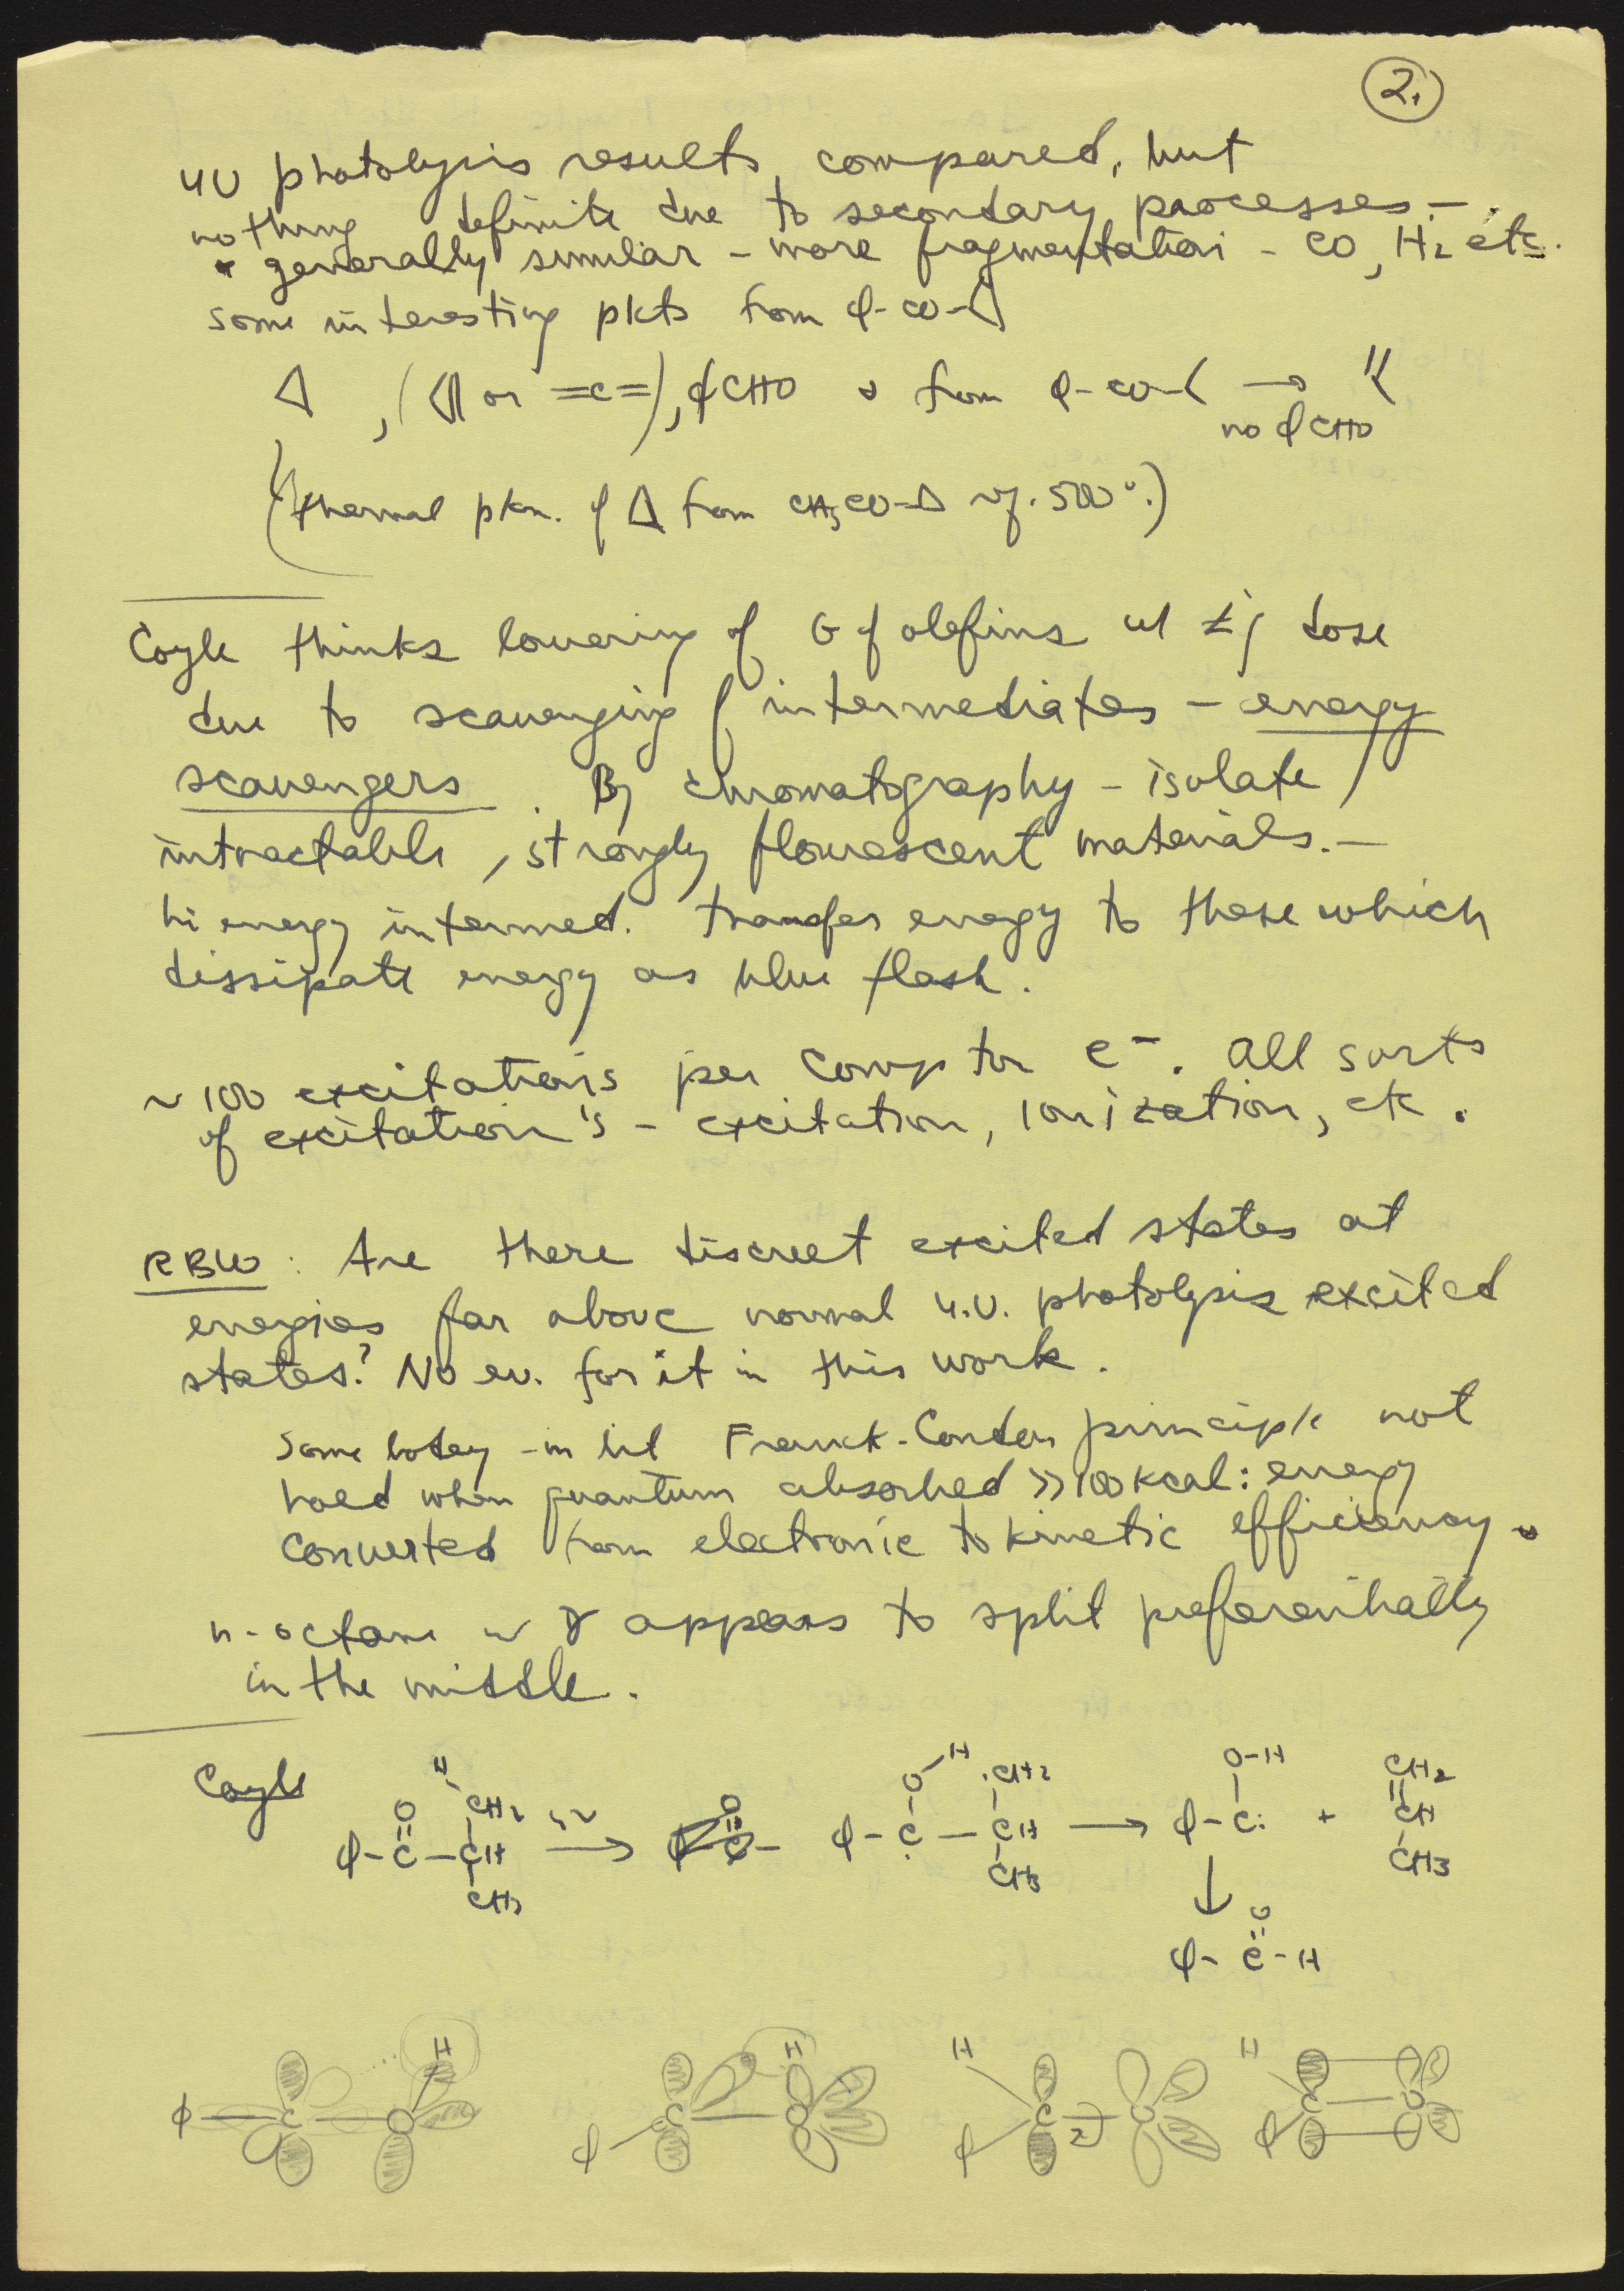 2.
UV photolysis results compared, but
nothing definite due to secondary processes -
generally similar - more fragmentation - CO, H2 etc.
some interesting pdts from φ-CO-△
△, (or =C=), φCHO & from φ-CO-< →
no φCHO
(thermal pdn. of △ from CH3CO-△ 500°.)
Coyle thinks lowering of G of olefins w/ dose
due to scavenging of intermediates - energy
scavengers. By chromatography - isolate
intractable, strongly flourescent materials. -
hi energy intermed. transfer energy to these which
dissipate energy as blue flash.
~ 100 excitations per Compton e-. All sorts
of excitation's - excitation, ionization, etc.
RBW: Are there discreet excited states at
energies far above normal u.v. photolysis excited
states? No ev. for it in this work.
Some botey - in lit Franck-Condon principle not
hold when quantum absorbed >> 100 kcal: energy
converted from electronic to kinetic efficiency.
n-octane w γ appears to split preferentially
in the middle.
Coyle
H O-H ·CH2 O-H CH2
O CH2 hν O
φ-C-CH → φ-C-CH → φ-C: + CH
CH3 CH3 CH3
↓
O
φ-C-H
H H H H
φ C O φ C O φ C O φ C O